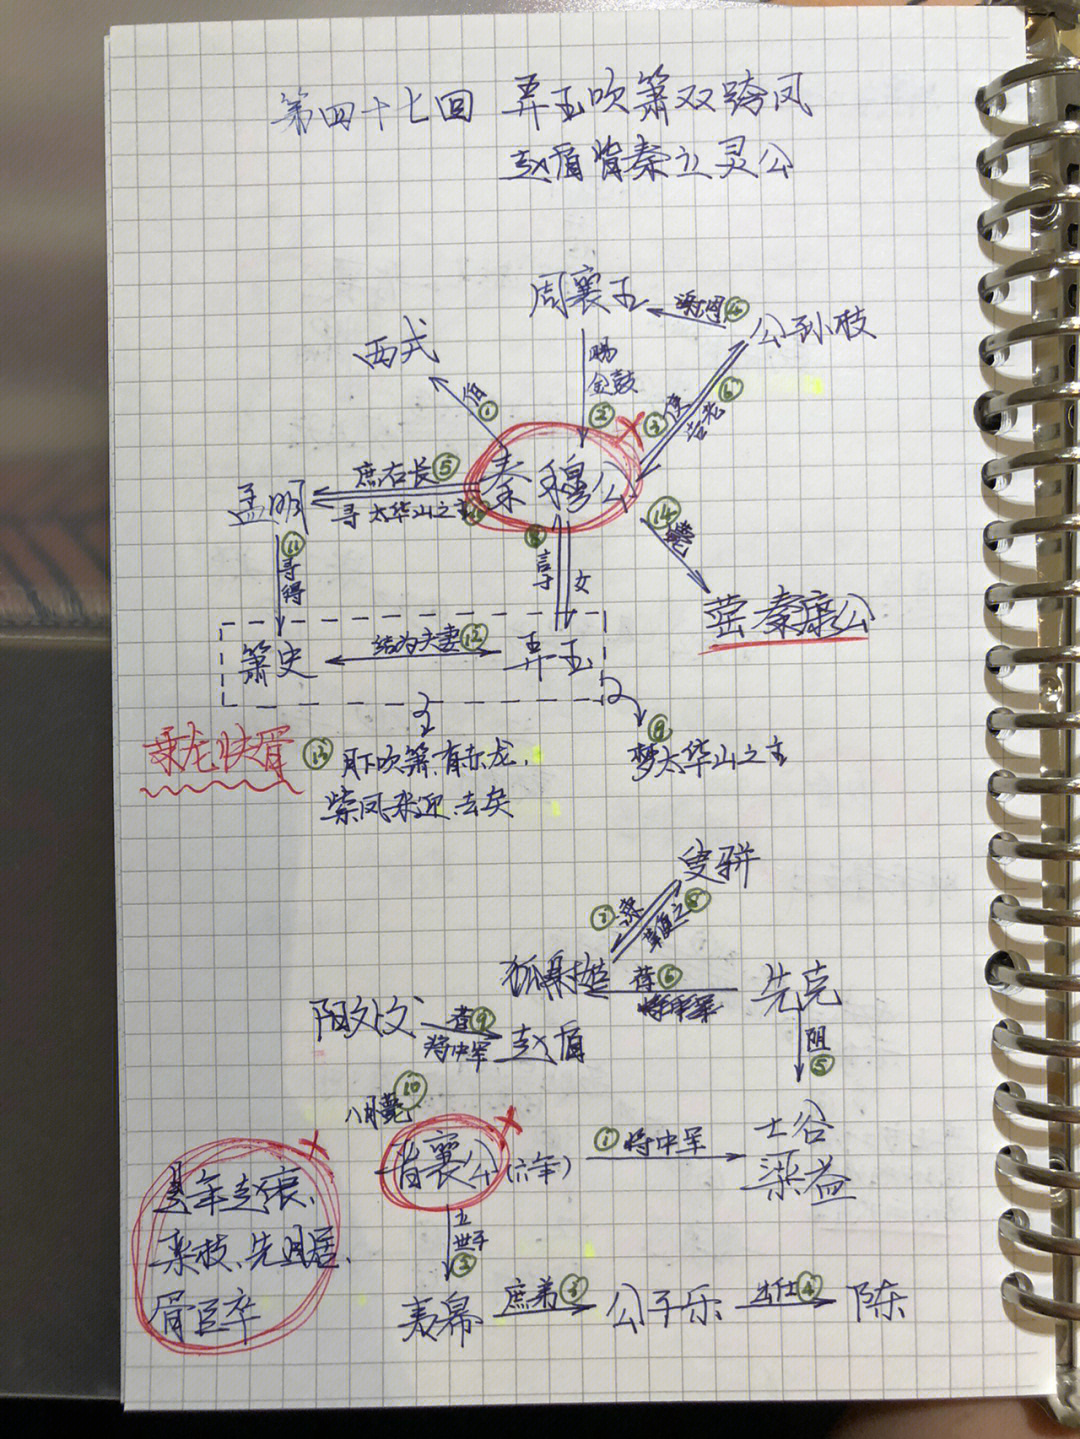 第四十七回 弄玉吹箫双跨凤
赵盾背秦立灵公
周襄王
谢恩 ④
公孙枝
西戎
赐
金鼓
②
伯 ①
③ 使
告老 ⑥
秦穆公
庶右长 ⑤
寻太华山之主
孟明
⑭ 薨
⑪ 寻得
女
秦康公
箫史
结为夫妻 ⑫
弄玉
乘龙快婿
⑬ 月下吹箫,有赤龙、
紫凤来迎、去矣
⑨
梦太华山之主
臾骈
⑦ 杀
⑧
狐射姑
荐 ⑥
先克
阳处父
⑨
将中军
赵盾
阻
⑤
八月薨 ⑩
晋襄公 (六年)
① 将中军
士谷
梁益
是年赵衰、
栾枝、先且居、
胥臣卒
立
世子
②
夷皋
庶弟 ③
公子乐
出仕 ④
陈